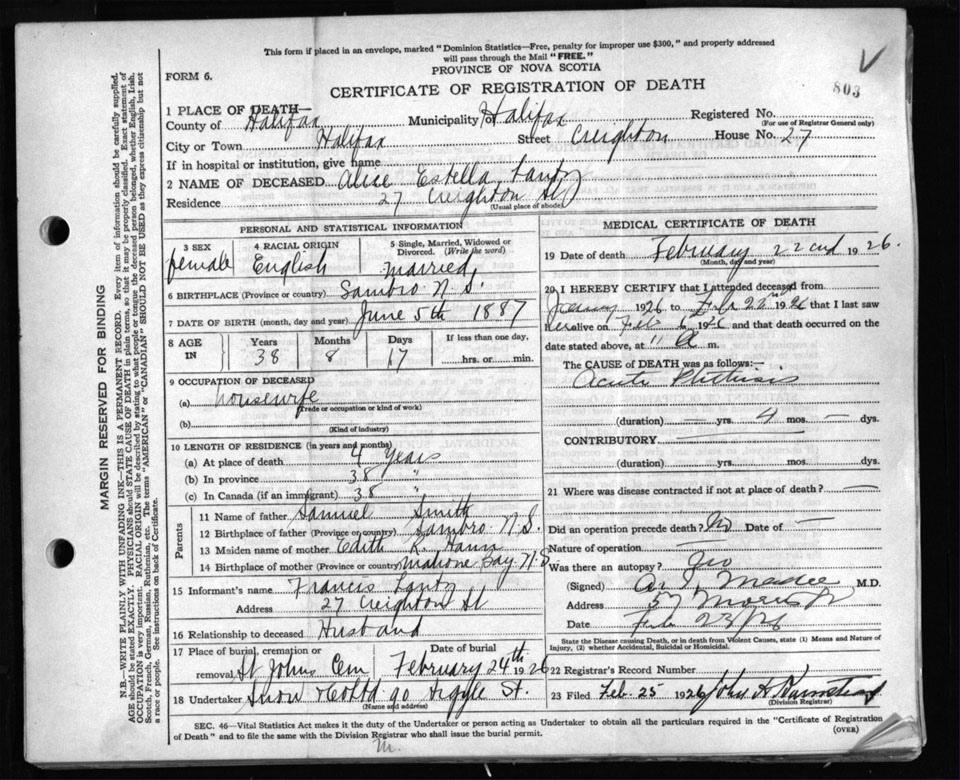 This form if placed in an envelope, marked "Dominion Statistics—Free, penalty for improper use $300," and properly addressed
will pass through the Mail "FREE."
PROVINCE OF NOVA SCOTIA
FORM 6.
CERTIFICATE OF REGISTRATION OF DEATH
803
1 PLACE OF DEATH—
County of Halifax Municipality of Halifax Registered No.
(For use of Registrar General only)
City or Town Halifax Street Creighton House No. 27
If in hospital or institution, give name
2 NAME OF DECEASED Alice Estella Lantz
Residence 27 Creighton St
(Usual place of abode)
PERSONAL AND STATISTICAL INFORMATION
3 SEX 4 RACIAL ORIGIN 5 Single, Married, Widowed or
Divorced. (Write the word)
female English Married
6 BIRTHPLACE (Province or country) Sambro N.S.
7 DATE OF BIRTH (month, day and year) June 5th 1887
8 AGE IN Years Months Days If less than one day,
38 8 17 hrs. or min.
9 OCCUPATION OF DECEASED
(a) housewife
(Trade or occupation or kind of work)
(b)
(Kind of industry)
10 LENGTH OF RESIDENCE (in years and months)
(a) At place of death 4 years
(b) In province 38 "
(c) In Canada (if an immigrant) 38 "
Parents
11 Name of father Samuel Smith
12 Birthplace of father (Province or country) Sambro N.S.
13 Maiden name of mother Edith R.
14 Birthplace of mother (Province or country) Mahone Bay N.S
15 Informant's name Francis Lantz
Address 27 Creighton St
16 Relationship to deceased Husband
17 Place of burial, cremation or removal Date of burial
St Johns Cem February 24th 1926
18 Undertaker Snow & Co Ltd 90 Argyle St.
(Name and address)
MEDICAL CERTIFICATE OF DEATH
19 Date of death February 22nd 1926.
(Month, day and year)
20 I HEREBY CERTIFY that I attended deceased from
1926 to Feb 22nd 1926 that I last saw
her alive on Feb 1926 and that death occurred on
date stated above, at 11 A m.
The CAUSE OF DEATH was as follows:—
Acute Phthisis
(duration) yrs. 4 mos. — dys.
CONTRIBUTORY
(duration) yrs. mos. dys.
21 Where was disease contracted if not at place of death? —
Did an operation precede death? No Date of —
Nature of operation —
Was there an autopsy? No
(Signed) M.D.
Address 37
Date Feb 23/26
State the Disease causing Death, or in death from Violent Causes, state (1) Means and Nature of
Injury, (2) whether Accidental, Suicidal or Homicidal.
22 Registrar's Record Number
23 Filed Feb 25 1926 John A
(Division Registrar)
SEC. 46—Vital Statistics Act makes it the duty of the Undertaker or person acting as Undertaker to obtain all the particulars required in the "Certificate of Registration
of Death" and to file the same with the Division Registrar who shall issue the burial permit. (OVER)
M.
MARGIN RESERVED FOR BINDING
N.B.—WRITE PLAINLY WITH UNFADING INK—THIS IS A PERMANENT RECORD. Every item of information should be carefully supplied.
AGE should be stated EXACTLY. PHYSICIANS should STATE CAUSE OF DEATH in plain terms, so that it may be properly classified. Exact statement of
OCCUPATION is very important. RACIAL ORIGIN will be described by stating to what people or tongue the deceased person belonged, whether English, Irish,
Scotch, French, German, Russian, Ruthenian, etc. The terms "AMERICAN" or "CANADIAN" SHOULD NOT BE USED as they express citizenship but not
a race or people. See instructions on back of Certificate.